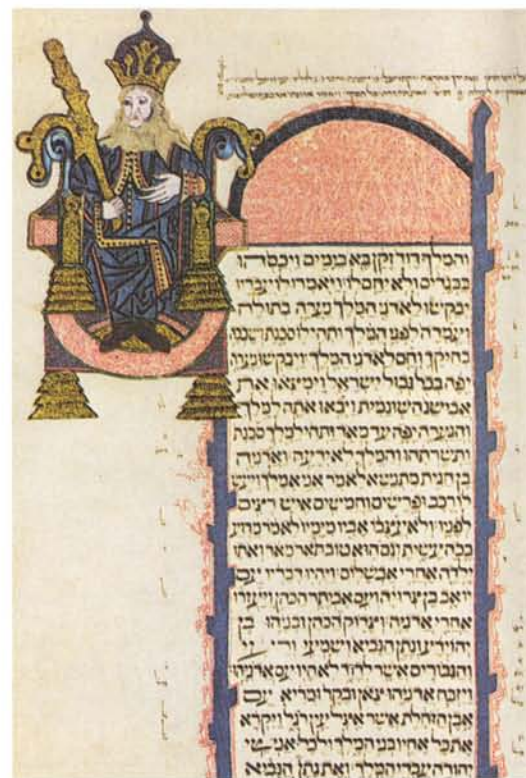 והמלך דוד זקן בא בימים ויכסהו
בבגדים ולא יחם לו ויאמרו לו עבדיו
יבקשו לאדני המלך נערה בתולה
ועמדה לפני המלך ותהי לו סכנת ושכבה
בחיקך וחם לאדני המלך ויבקשו נערה
יפה בכל גבול ישראל וימצאו את
אבישג השונמית ויבאו אתה למלך
והנערה יפה עד מאד ותהי למלך סכנת
ותשרתהו והמלך לא ידעה ואדניה
בן חגית מתנשא לאמר אני אמלך ויעש
לו רכב ופרשים וחמישים איש רצים
לפניו ולא עצבו אביו מימיו לאמר מדוע
ככה עשית וגם הוא טוב תאר מאד ואתו
ילדה אחרי אבשלום ויהיו דבריו עם
יואב בן צרויה ועם אביתר הכהן ויעזרו
אחרי אדניה וצדוק הכהן ובניהו בן
יהוידע ונתן הנביא ושמעי ורעי
והגבורים אשר לדוד לא היו עם אדניהו
ויזבח אדניהו צאן ובקר ומריא עם
אבן הזחלת אשר אצל עין רגל ויקרא
את כל אחיו בני המלך ולכל אנשי
יהודה עבדי המלך ואת נתן הנביא